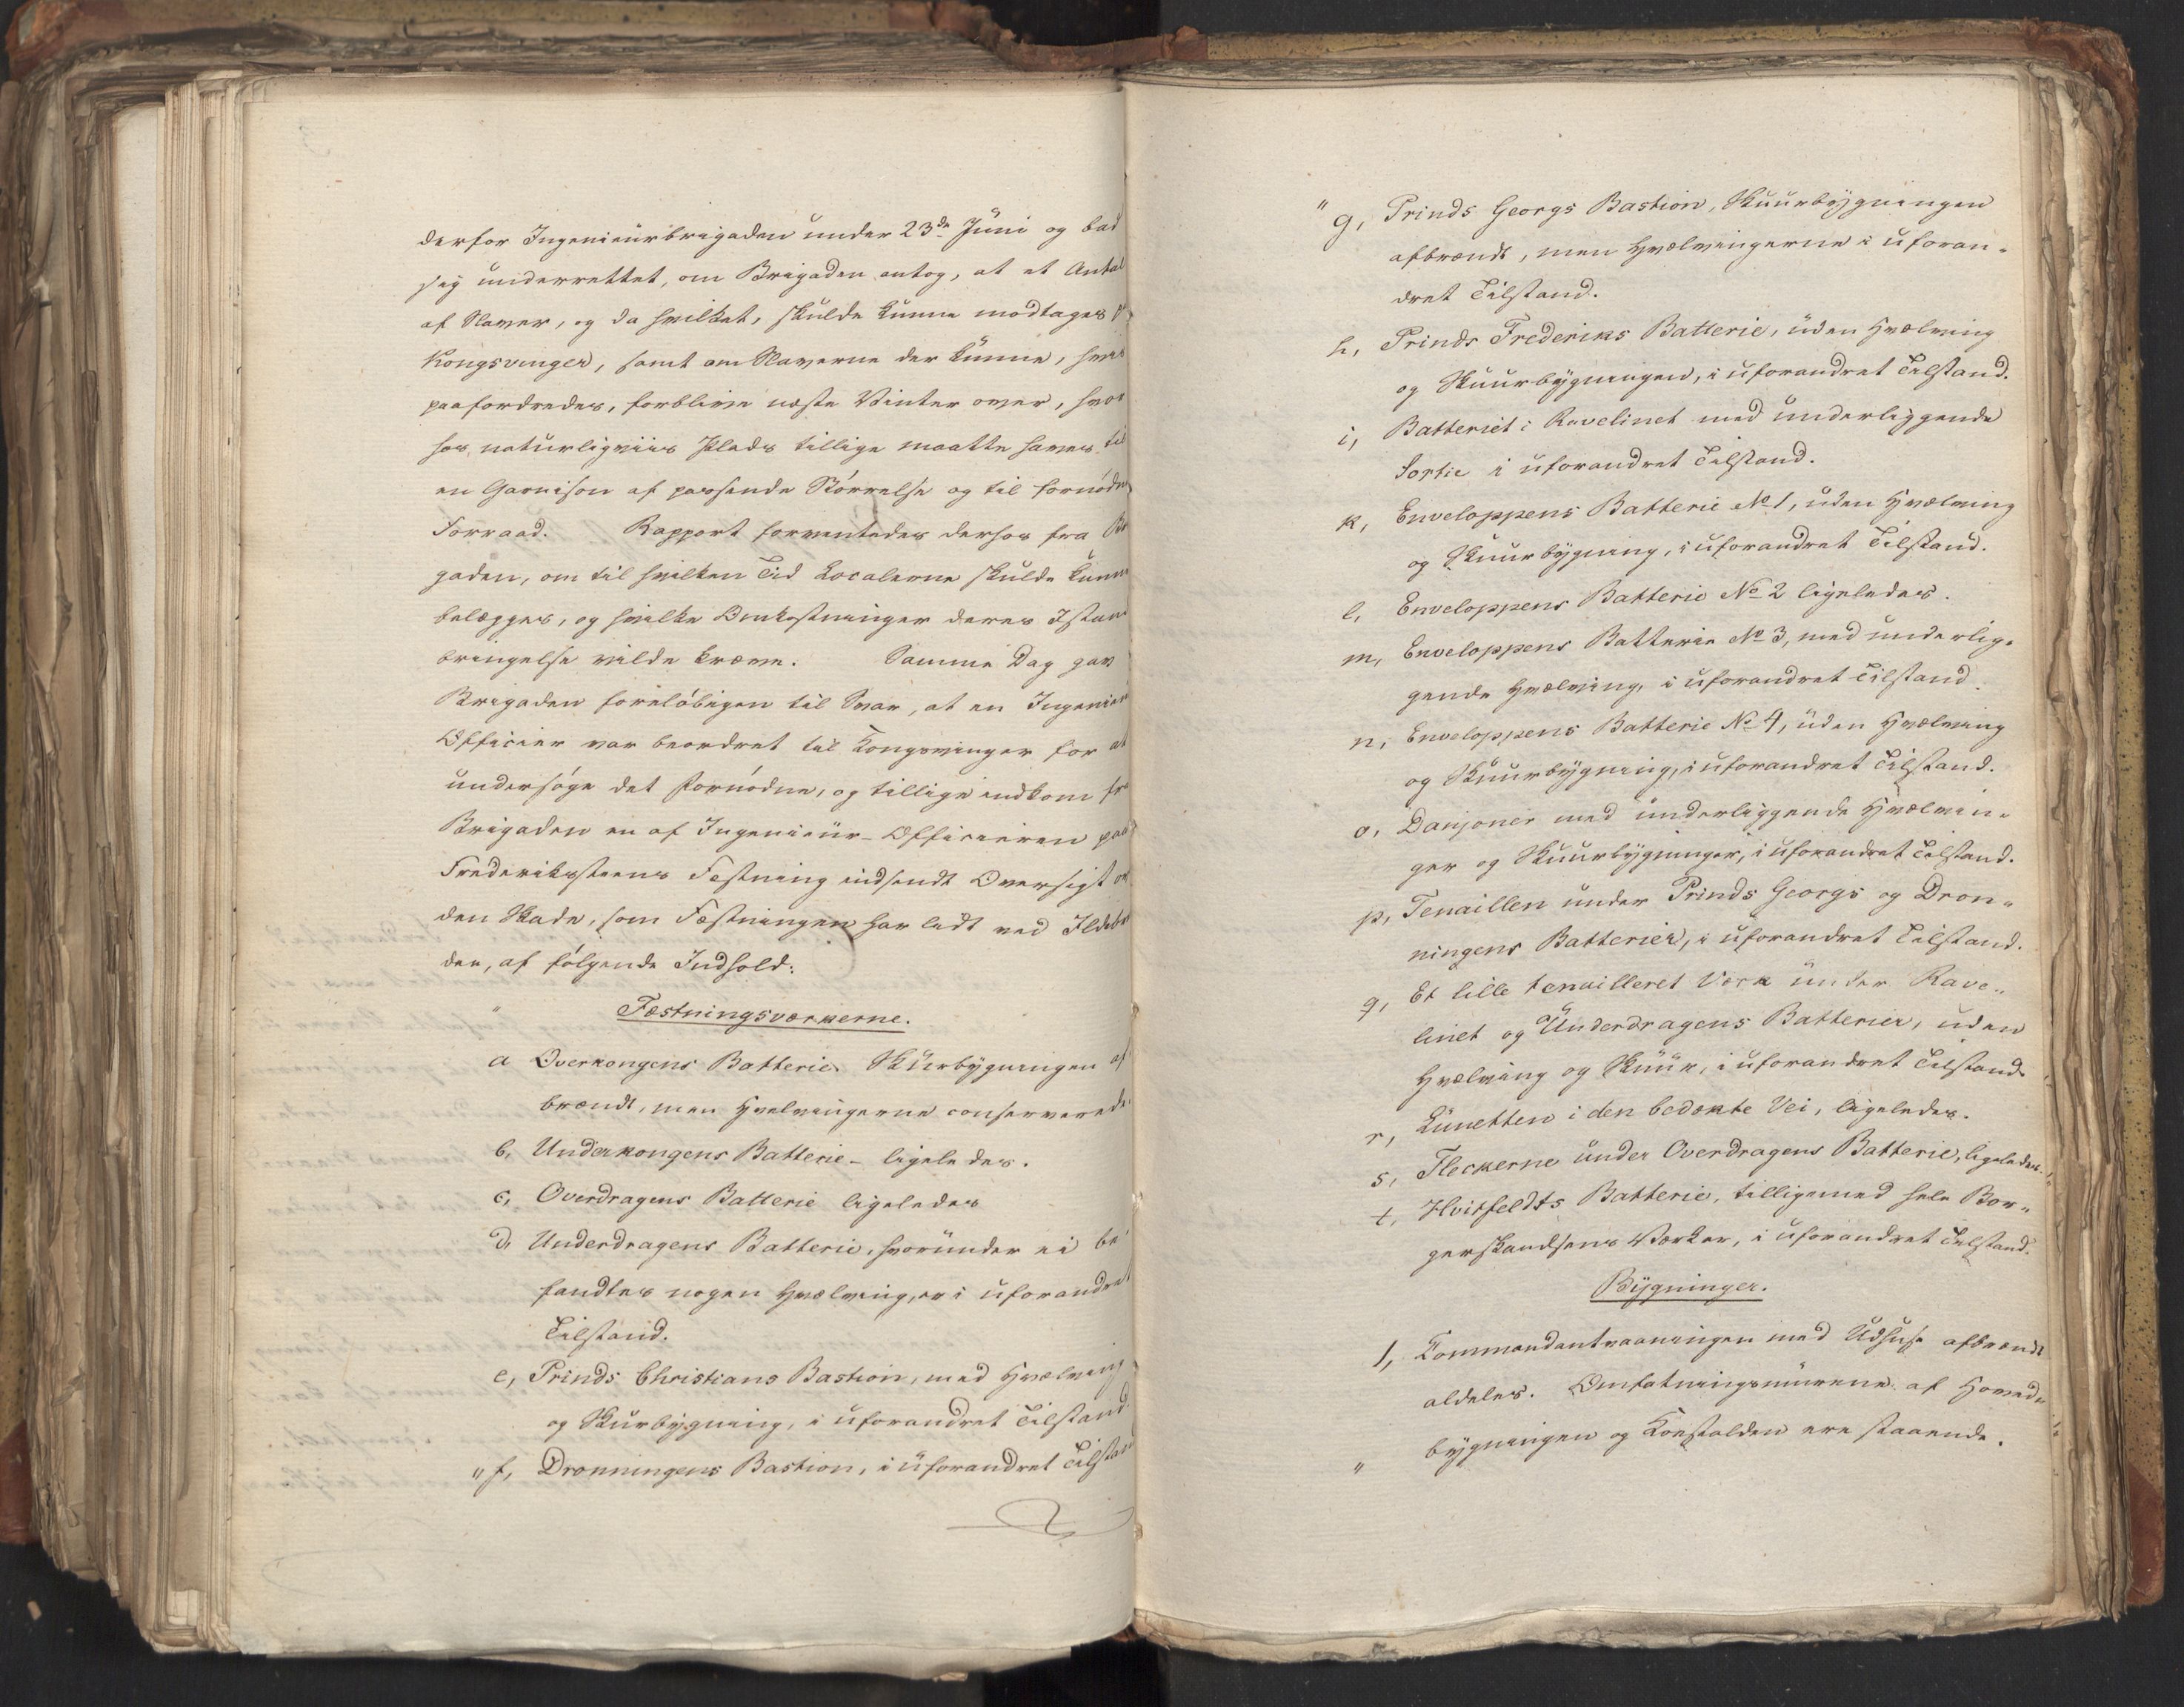 derfor Ingenieurbrigaden under 23de Juni og bad
sig underrettet, om Brigaden antog, at et Antal
af Slaver, og da hvilket, skulde kunne modtages
Kongsvinger, samt om Slaverne der kunne, hvis
paafordredes, forblive næste Vinter over, hvor
hos naturligviis Plads tillige maatte haves til
en Garnison af passende Størrelse og til fornødne
Forraad. Rapport forventedes derhos fra Bri
gaden, om til hvilken Tid Localerne skulde kunne
belægges, og hvilke Omkostninger deres Istand
bringelse vilde kræve. Samme Dag gav
Brigaden foreløbigen til Svar, at en Ingenieur
Officier var beordret til Kongsvinger for at
undersøge det Fornødne, og tillige indkom fra
Brigaden en af Ingenieur-Officieren paa
Frederikssteens Fæstning indsendt Oversigt over
den Skade, som Fæstningen har lidt ved Ildebran
den, af følgende Indhold:
" Fæstningsværkerne.
a Overkongens Batterie. Skuurbygningen af
brændt, men Hvelvingerne conserverede.
b, Underkongens Batterie - ligeledes.
c, Overdragens Batterie ligeledes
d, Underdragens Batterie, hvorunder ei be
fandtes nogen Hvælving, er i uforandret
Tilstand.
e, Prinds Christians Bastion, med Hvælving
og Skuurbygning, i uforandret Tilstand.
" f, Dronningens Bastion, i uforandret Tilstand
" g, Prinds Georgs Bastion, Skuurbygningen
afbrændt, men Hvælvingerne i uforan-
dret Tilstand.
h, Prinds Frederiks Batterie, uden Hvælving
og Skuurbygningen, i uforandret Tilstand.
i, Batteriet i Ravelinet med underliggende
Sortie i uforandret Tilstand.
k, Enveloppens Batterie No 1, uden Hvælving
og Skuurbygning, i uforandret Tilstand.
l, Enveloppens Batterie No 2 ligeledes.
m, Enveloppens Batterie No 3, med underlig-
gende Hvælving, i uforandret Tilstand.
n, Enveloppens Batterie No 4, uden Hvælving
og Skuurbygning, i uforandret Tilstand.
o, Donjoner med underliggende Hvælvin-
ger og Skuurbygninger, i uforandret Tilstand.
p, Tenaillen under Prinds Georgs og Dron-
ningens Batterier, i uforandret Tilstand.
q, Et lille tenailleret Værk under Rave-
linet og Underdragens Batterier, uden
Hvælving og Skuur, i uforandret Tilstand.
r, Lunetten i den bedækte Vei, ligeledes.
s, Fleckerne under Overdragens Batterie, ligeledes.
t, Hvitfeldts Batterie, tilligemed hele Bor-
gerskandsens Værker, i uforandret Tilstand.
Bygninger.
1, Commandantvaaningen med Udhuse afbrændt
aldeles. Omfatningsmurene af Hoved-
" bygningen og Koestalden ere staaende.